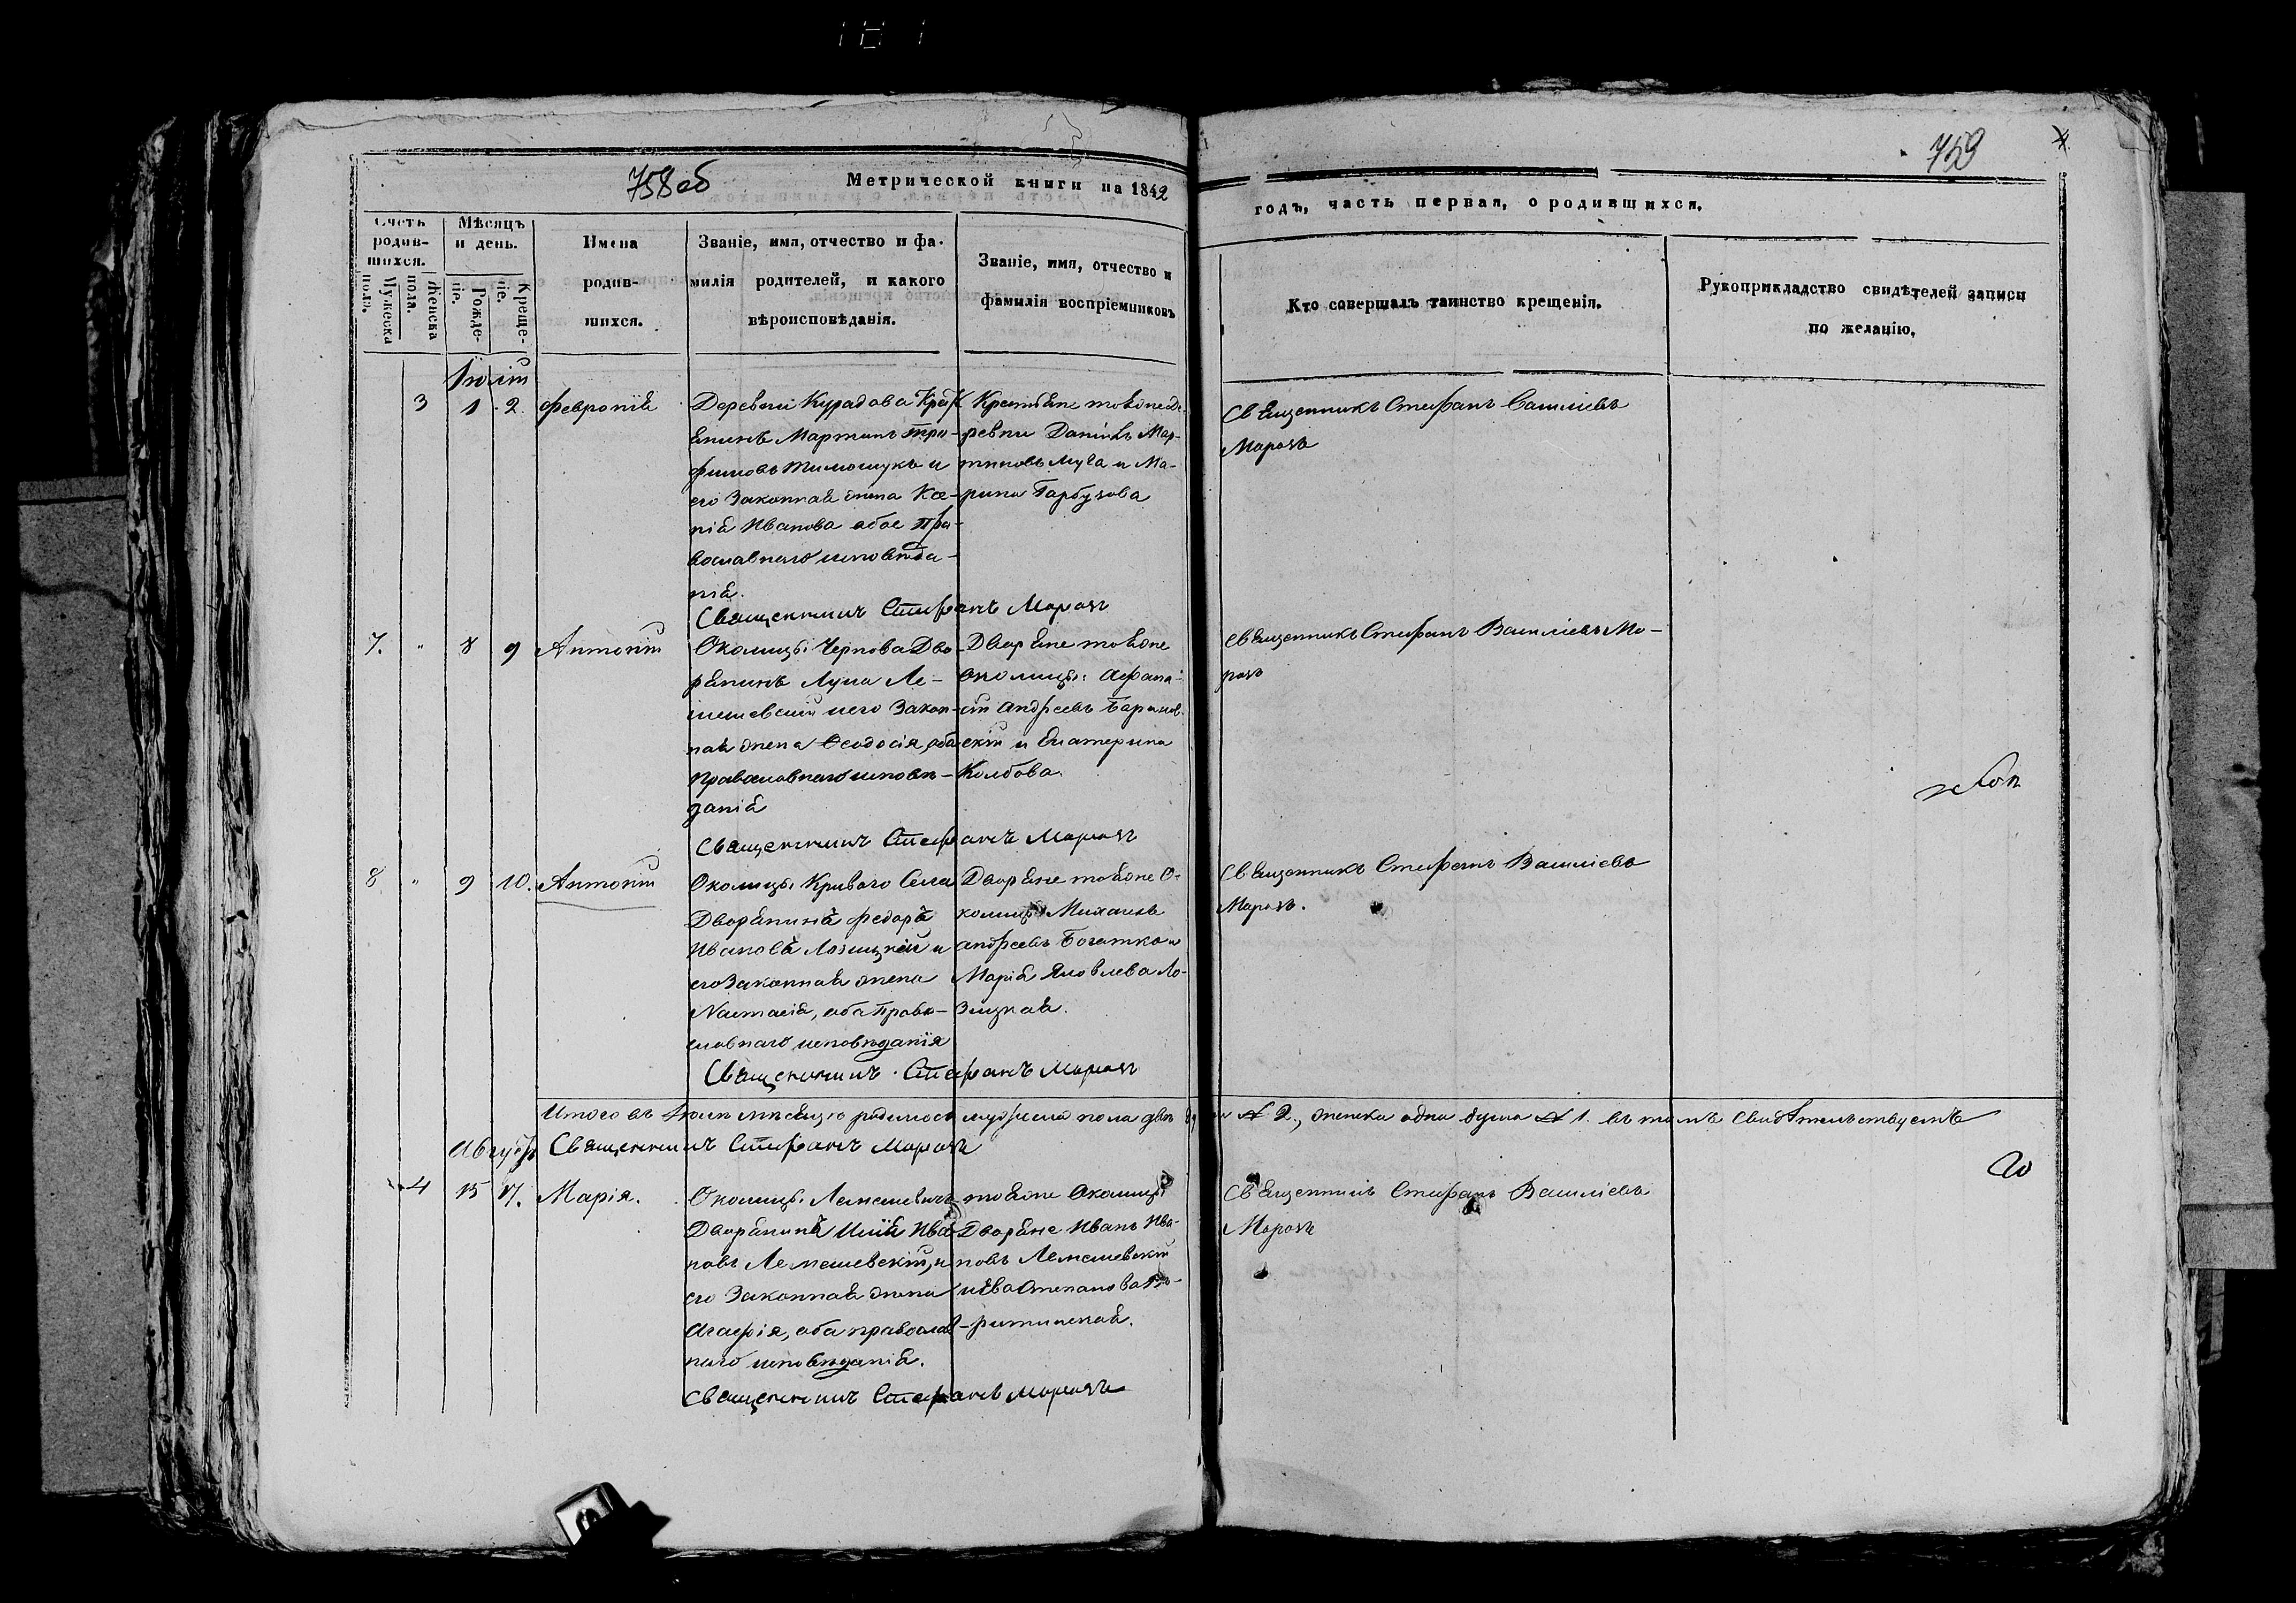 181
758 об
Метрической книги на 1842
759
годъ, часть первая, о родившихся.
Счетъ родив-
шихся.
Мужеска пола.
Женска пола.
Мѣсяцъ и день.
Рожде-
ніе.
Креще-
ніе.
Имена
родив-
шихся.
Званіе, имя, отчество и фа-
милія родителей, и какого
вѣроисповѣданія.
Званіе, имя, отчество и
фамилія воспріемниковъ
Кто совершалъ таинство крещенія.
Рукоприкладство свидѣтелей записи
по желанію.
3
1
2.
Февронія
Деревни Курадова Кресть
янинъ Мартинъ
Тимощукъ и
его Законная жена Ксе-
нія Иванова обое Пра-
вославнаго исповѣда-
нія.
Крестьяне тояже Де-
ревни Даніилъ Мар-
тиновъ Муха и Ма-
рина Гарбузова
Священникъ Стефанъ Василіевъ
Морозъ
Священникъ Стефанъ Морозъ
7.
"
8
9
Антоній
Околицы Чернова Дво-
рянинъ Лука Ле-
мешевскій и его Закон-
ная жена Феодосія, оба
Православнаго исповѣ-
данія
Дворяне тояже
околицы: Афана-
сій Андреевъ Баранов-
скій и Екатерина
Колбова.
Священникъ Стефанъ Василіевъ Мо-
розъ
Священникъ Стефанъ Морозъ
8
"
9
10.
Антоній
Околицы Кривого Села
Дворянинъ Федоръ
Ивановъ Лозицкій и
его Законная жена
Настасія, оба Право-
славнаго исповѣданія
Дворяне тояже О-
колицы Михаилъ
Андреевъ Богатко и
Марія Яковлева Ло-
зицкая.
Священникъ Стефанъ Василіевъ
Морозъ.
Священникъ Стефанъ Морозъ
Итого въ Іюлѣ мѣсяцѣ родилось мужеска пола двѣ № 2., женска одна душа № 1. въ томъ свидѣтельствуетъ
Августъ
Священникъ Стефанъ Морозъ
4
15
17.
Марія.
Околицы Лемешевичъ
Дворянинъ Илія Ива-
новъ Лемешевскій, и
его Законная жена
Агафія, оба православ-
наго исповѣданія.
тояже Околицы
Дворяне Иванъ Ива-
новъ Лемешевскій
и Ева Степанова
Священникъ Стефанъ Василіевъ
Морозъ
Священникъ Стефанъ Морозъ